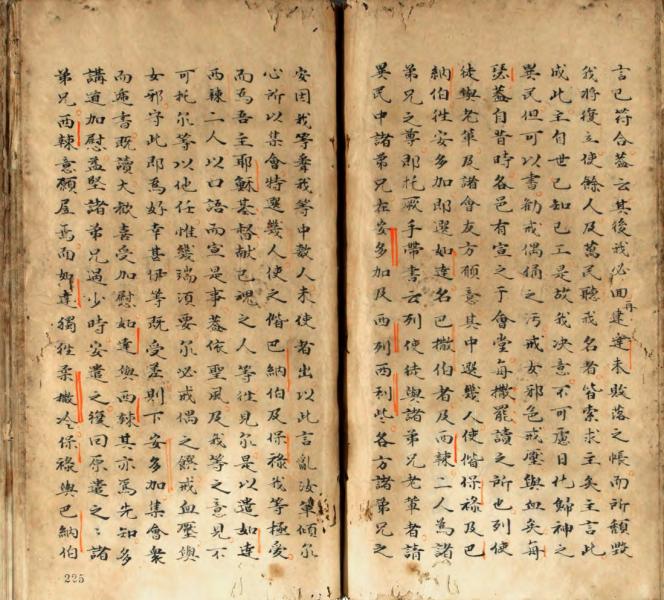 言已符合蓋云其後我必回再建達未敗落之帳而所頹毀
我將復立使餘人及萬民聽我名者皆索求主矣主言此
成此主自世已知已工是故我决意不可慮日化婦神之
異民但可以書勸戒偶俑之污戒女邪色戒壓與血矣每
瑟蓋自昔時各邑有宣之于會堂每撒罷讀之所也列使
徒與老軰及諸會友方願意其中選幾人使偕保祿及巴
納伯徃安多加即選如達名巴撒伯者及西辣二人為諸
弟兄之尊即托厥手帶書云列使徒與諸弟兄老軰者請
異民中諸弟兄在安多加及西列西利些各方諸弟兄之
安因我等我等中數人未使者出以此言亂汝軰傾尔
心所以集會特選幾人使之偕巴納伯及保祿我等極愛
而為吾主耶穌基督献已魂之人等徃見尔是以遣如達
西辣二人以口語而宣是事蓋依聖風及我等之意見不
可托尔等以他任惟幾端須要尔必戒偶之饌戒血壓與
女邪守此即為好幸甚伊等既受差則下安多加集會衆
而遞書既讀大歡喜受加慰如達與西辣其亦為先知多
講道加慰益堅諸弟兄過少時安遣之復回原遣之〻諸
弟兄西辣意願居焉而如達獨徃柔撒冷保祿與巴納伯
225